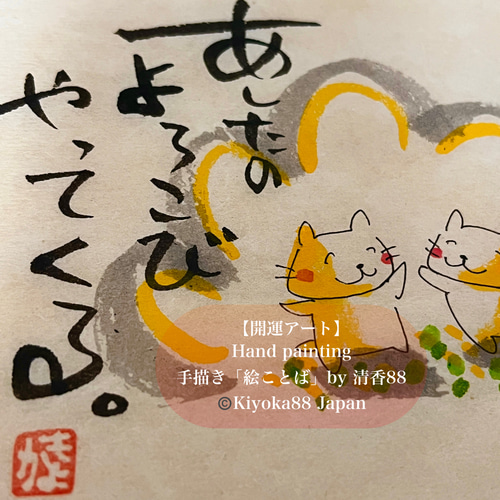 あしたの
よろこび
やってくる。
きよか
【開運アート】
Hand painting
手描き「絵ことば」by 清香88
©Kiyoka88 Japan